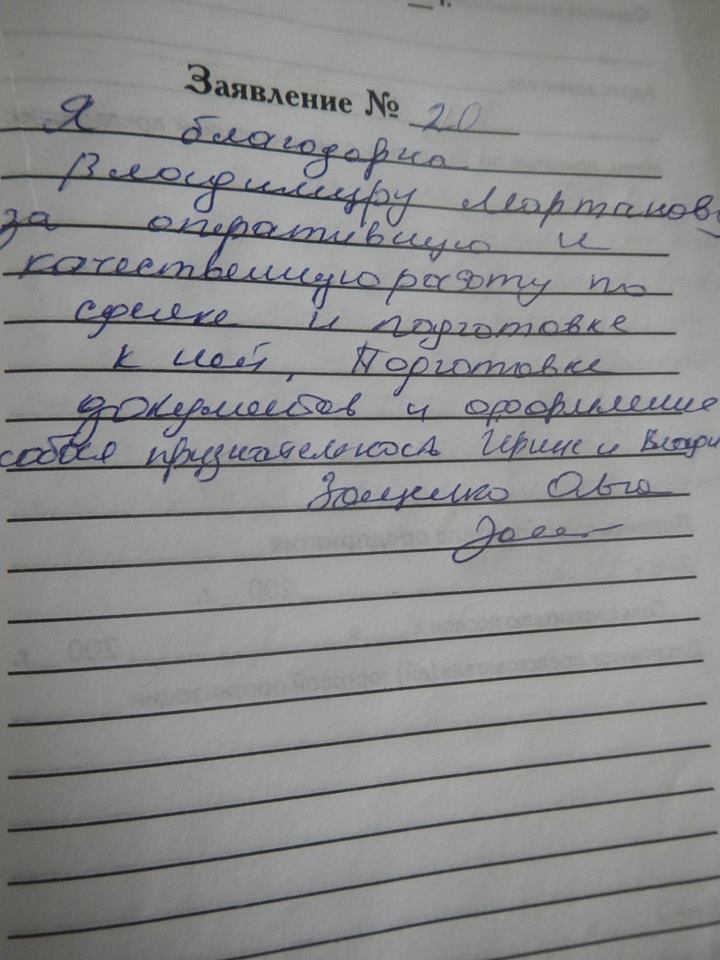 Заявление № 20
Я благодарна
Владимиру Мартанов
за оперативную и
качественную работу по
сделке и подготовке
к ней, Подготовке
документов и оформление
особая признательность Ирине и Влади
Ольга